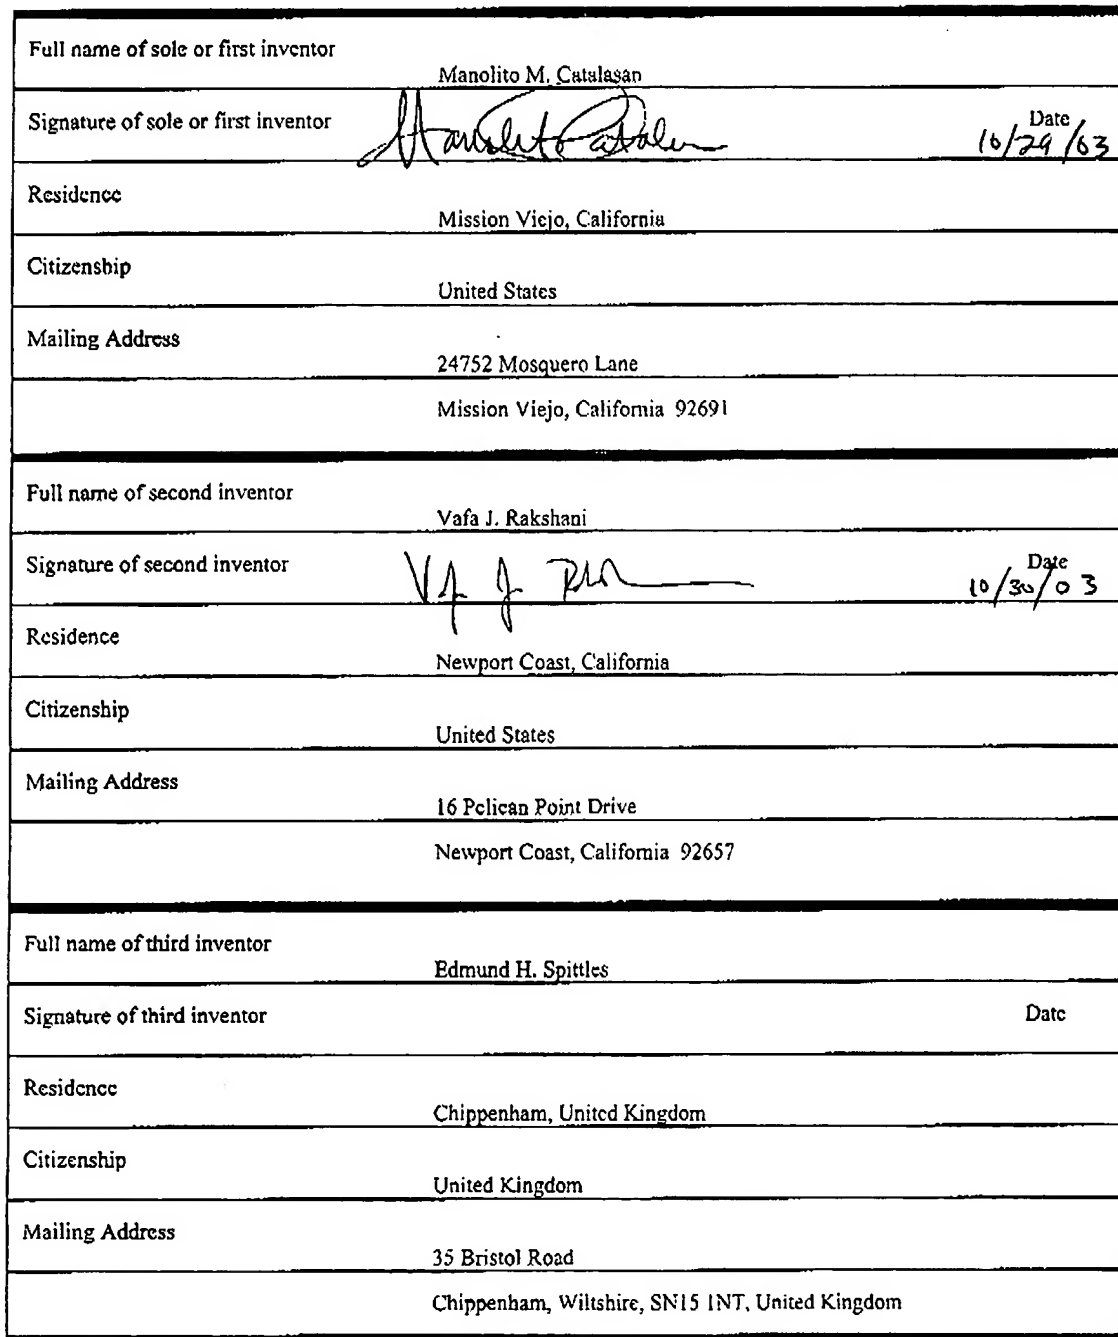 Full name of sole or first inventor
Manolito M. Catalasan
Signature of sole or first inventor
Manolito Catalan
Date
10/29/03
Residence
Mission Viejo, California
Citizenship
United States
Mailing Address
24752 Mosquero Lane
Mission Viejo, California 92691
Full name of second inventor
Vafa J. Rakshani
Signature of second inventor
Date
10/30/03
Residence
Newport Coast, California
Citizenship
United States
Mailing Address
16 Pelican Point Drive
Newport Coast, California 92657
Full name of third inventor
Edmund H. Spittles
Signature of third inventor
Date
Residence
Chippenham, United Kingdom
Citizenship
United Kingdom
Mailing Address
35 Bristol Road
Chippenham, Wiltshire, SN15 1NT, United Kingdom